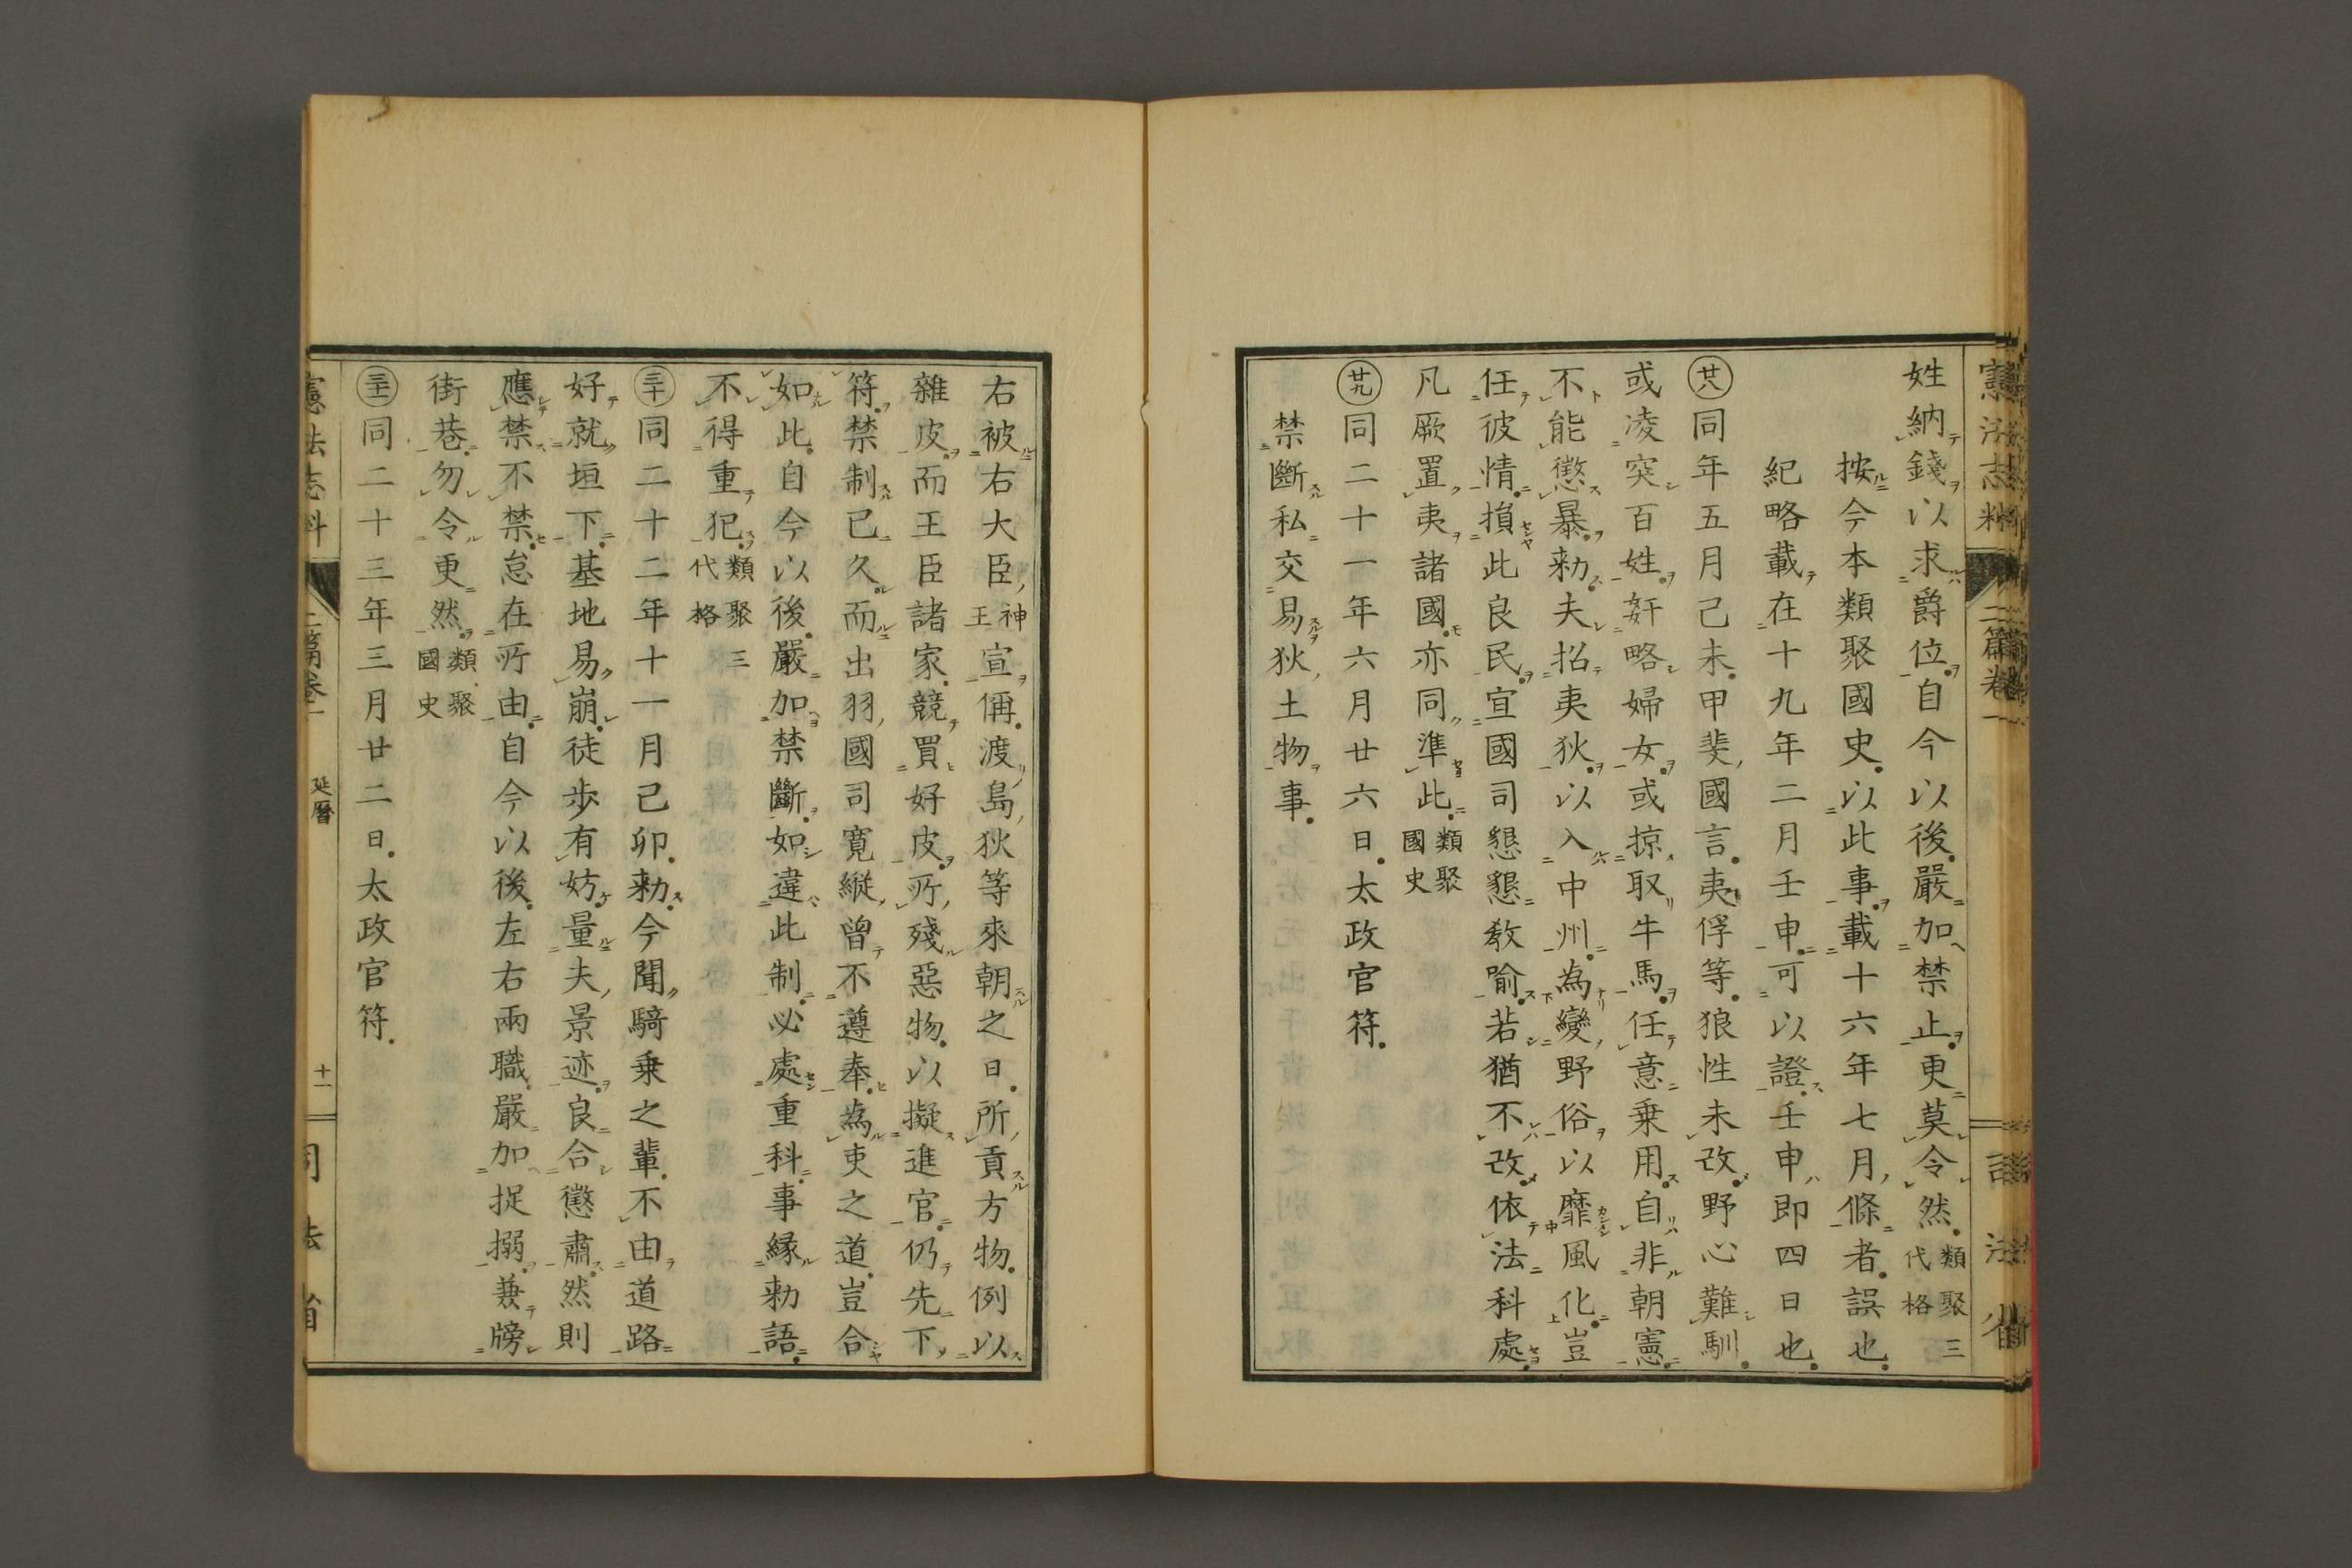 憲法志料 二篇卷一 司法省
姓納錢以求爵位自今以後嚴加禁止更莫令然 類聚三代格
按今本類聚國史以此事載十六年七月條者誤也
紀略載在十九年二月壬申可以證壬申即四日也
廿八 同年五月己未甲斐國言夷俘等狼性未改野心難馴
或凌突百姓姧略婦女或掠取牛馬任意乗用自非朝憲
不能懲暴勅夫招夷狄以入中州為變野俗以靡風化豈
任彼情損此良民宣國司懇懇敎喻若猶不改依法科處
凡厥置夷諸國亦同準此 類聚國史
廿九 同二十一年六月廿六日太政官符
禁斷私交易狄土物事
右被右大臣 神王 宣偁渡島狄等來朝之日所貢方物例以
雜皮而王臣諸家競買好皮所殘惡物以擬進官仍先下
符禁制已久而出羽國司寛縱曾不遵奉為吏之道豈合
如此自今以後嚴加禁斷如違此制必處重科事縁勅語
不得重犯 類聚三代格
三十 同二十二年十一月己卯勅今聞騎乗之輩不由道路
好就垣下基地易崩徒歩有妨量夫景迹良合懲肅然則
應禁不禁怠在所由自今以後左右兩職嚴加捉搦兼牓
街巷勿令更然 類聚國史
三十一 同二十三年三月廿二日太政官符
憲法志料 二篇卷一 延曆 十一 司法省